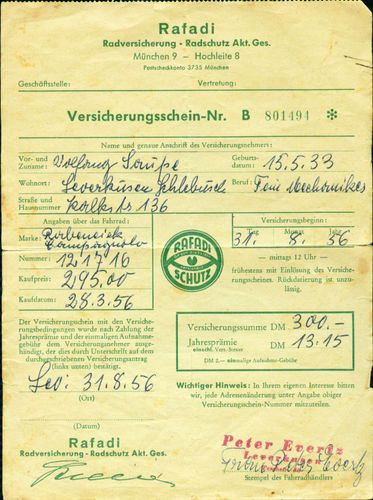 Rafadi
Radversicherung - Radschutz Akt. Ges.
München 9 — Hochleite 8
Postscheckkonto 3735 München
Geschäftsstelle: Vertretung:
Versicherungsschein-Nr. B 801494 *
Name und genaue Anschrift des Versicherungsnehmers:
Vor- und Zuname: Wolfgang Saupe Geburtsdatum: 15.5.33
Wohnort: Leverkusen Schlebusch Beruf: Fein Mechaniker
Straße und Hausnummer Kalkstr 136
Angaben über das Fahrrad: Versicherungsbeginn:
Marke: Campagnolo Tag Monat Jahr
31. 8. 56
Nummer: 121716
— mittags 12 Uhr —
Kaufpreis: 295,00
frühestens mit Einlösung des Versicherungsscheines. Rückdatierung ist unzulässig.
Kaufdatum: 28.3.56
RAFADI
SCHUTZ
Der Versicherungsschein mit den Versicherungsbedingungen wurde nach Zahlung der
Jahresprämie und der einmaligen Aufnahmegebühr dem Versicherungsnehmer ausgehändigt,
der dies durch Unterschrift auf dem
durchgeschriebenen Versicherungsantrag
(links unten) bestätigt.
Versicherungssumme DM 300.-
Jahresprämie DM 13.15
einschl. Vers.-Steuer
DM 2.— einmalige Aufnahme-Gebühr
Lev: 31.8.56
(Ort)
Wichtiger Hinweis: In Ihrem eigenen Interesse bitten
wir, jede Adressenänderung unter Angabe obiger
Versicherungsschein-Nummer mitzuteilen.
(Datum)
Rafadi
Radversicherung - Radschutz Akt. Ges.
Peter Evertz
Leverkusen
Stempel des Fahrradhändlers